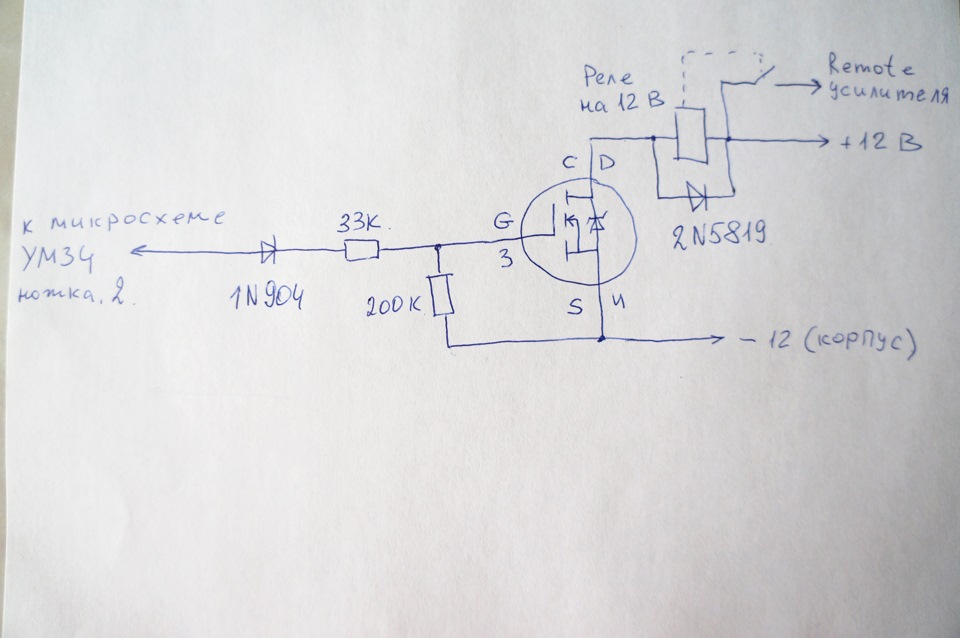 Реле
на 12 В
Remote
усилителя
+12 В
С D
2N5819
к микросхеме
УМ34
ножка. 2.
1N904
33К.
200К
G
З
S И
- 12 (корпус)